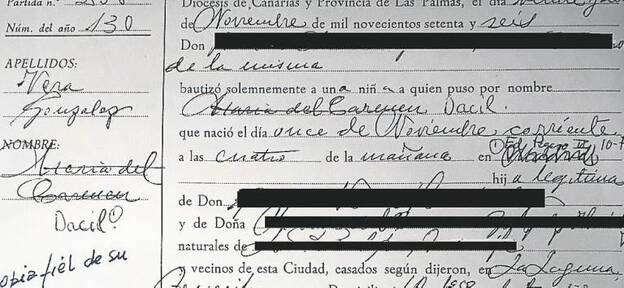 Partida n.º
Núm. del año 130
APELLIDOS:
Vera
Gonzalez
NOMBRE:
Maria del
Carmen
Dacil
copia fiel de su
Diócesis de Canarias y Provincia de Las Palmas, el día
de Noviembre de mil novecientos setenta y seis
Don
de la misma
bautizó solemnemente a una niña a quien puso por nombre
Maria del Carmen Dacil.
que nació el día once de Noviembre corriente
a las cuatro de la mañana en
hij a legítima
de Don
y de Doña
naturales de
y vecinos de esta Ciudad, casados según dijeron, en La Laguna,